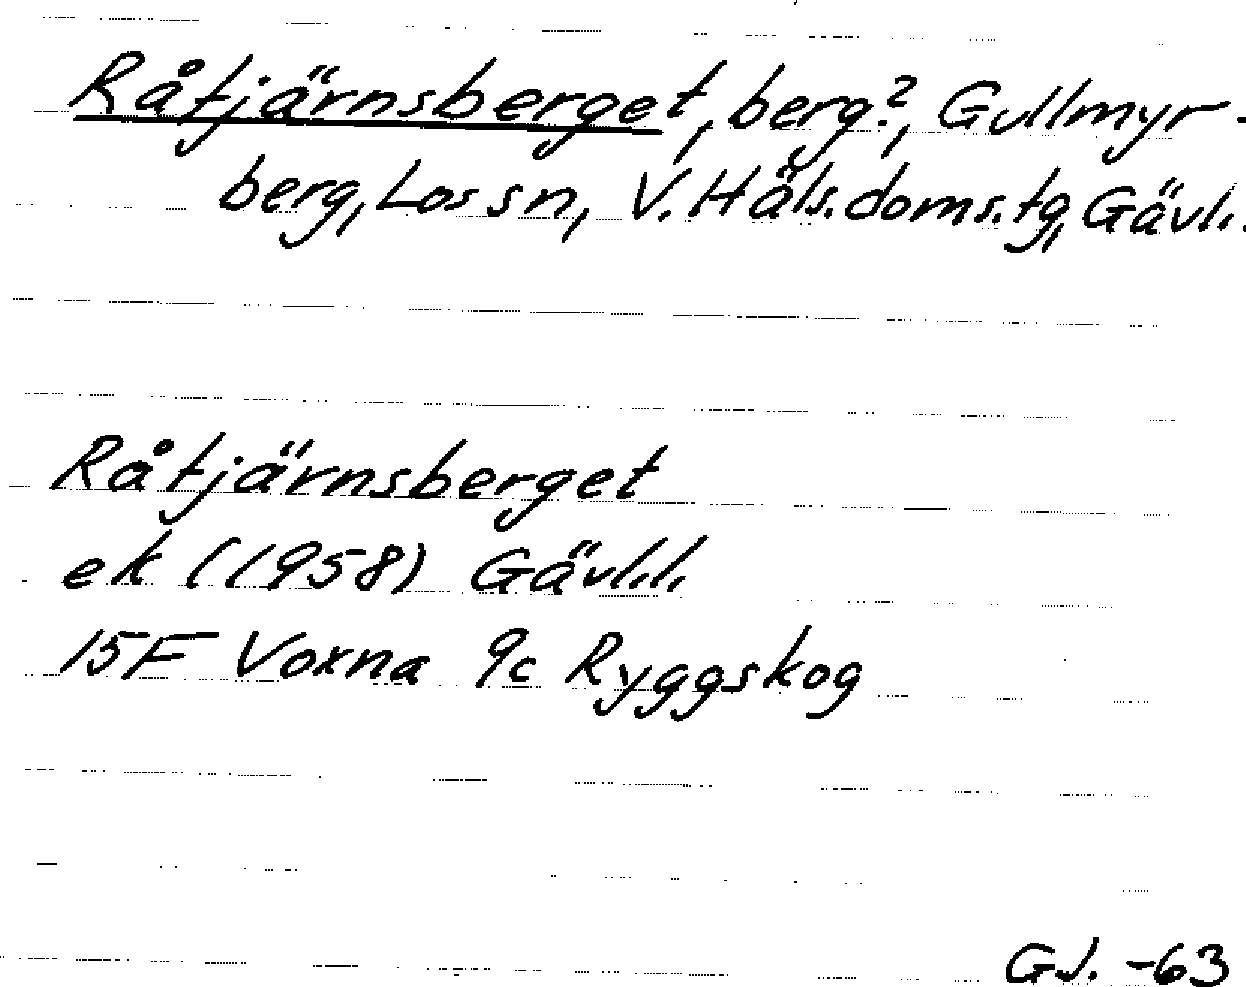 Råtjärnsberget, berg?, Gullmyr-
berg, Los sn, V. Häls. doms. tg, Gävl.
Råtjärnsberget
ek (1958) Gävl.l.
15F Voxna 9c Ryggskog
GJ. -63